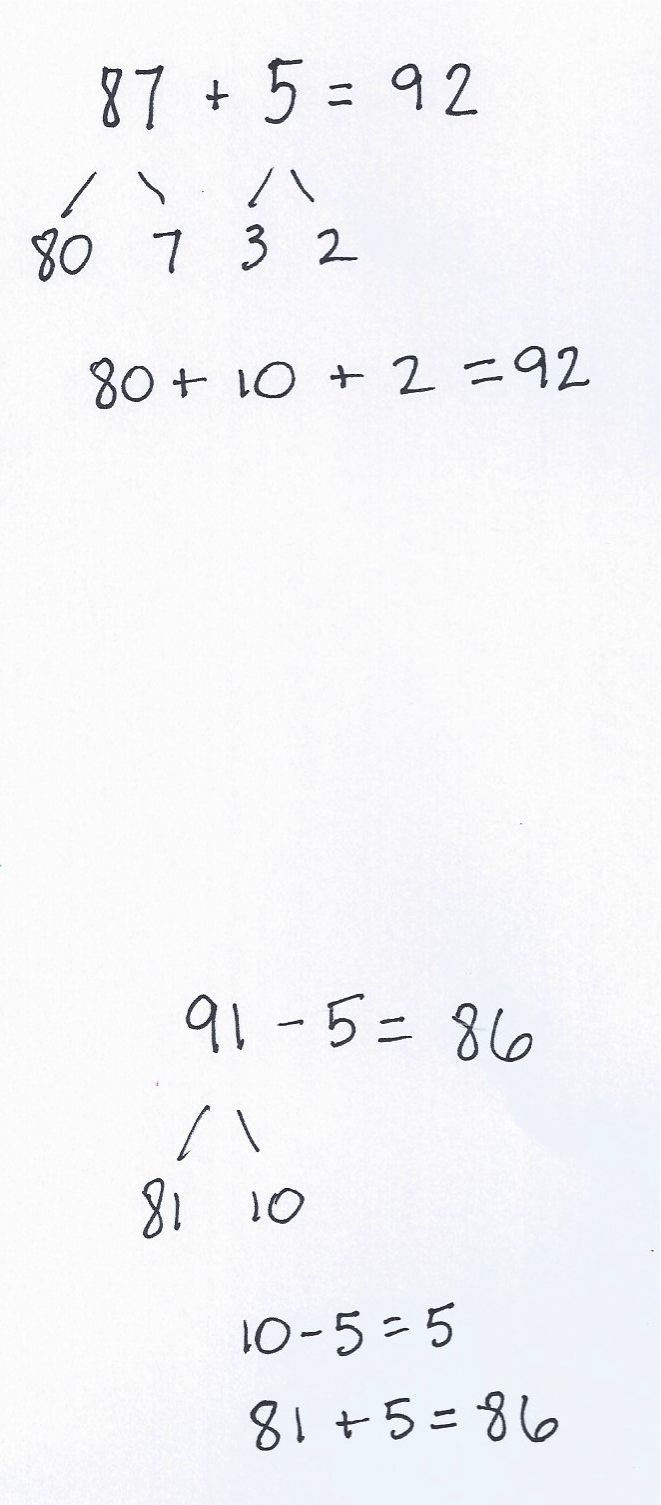 87 + 5 = 92
80 7 3 2
80 + 10 + 2 = 92
91 - 5 = 86
81 10
10 - 5 = 5
81 + 5 = 86